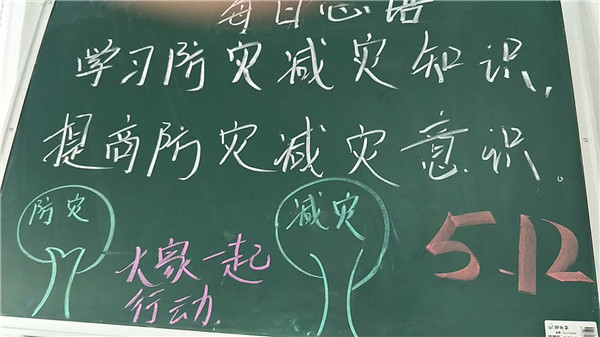 每日心语
学习防灾减灾知识,
提商防灾减灾意识。
防灾
减灾
大家一起
行动.
5.12